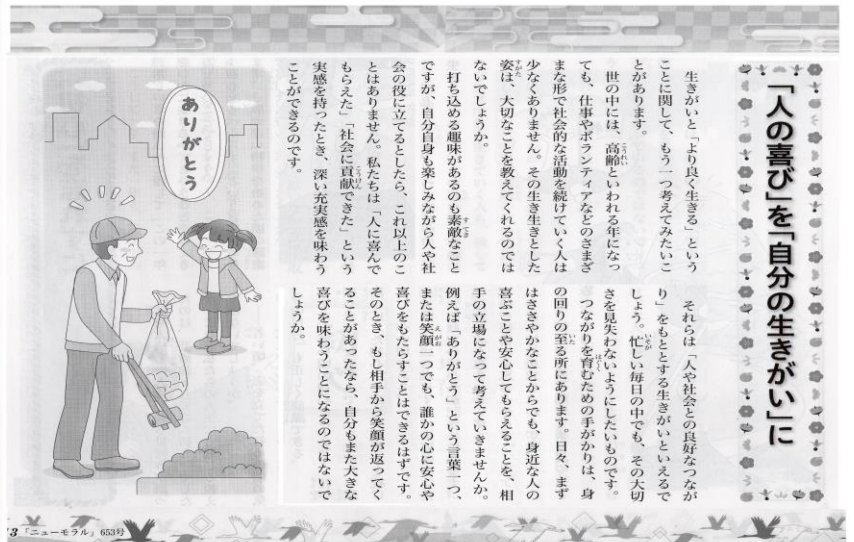 「人の喜び」を「自分の生きがい」に
生きがいと「より良く生きる」という
ことに関して、もう一つ考えてみたいこ
とがあります。
世の中には、高齢といわれる年になっ
ても、仕事やボランティアなどのさまざ
まな形で社会的な活動を続けていく人は
少なくありません。その生き生きとした
姿は、大切なことを教えてくれるのでは
ないでしょうか。
打ち込める趣味があるのも素敵なこと
ですが、自分自身も楽しみながら人や社
会の役に立てるとしたら、これ以上のこ
とはありません。私たちは「人に喜んで
もらえた」「社会に貢献できた」という
実感を持ったとき、深い充実感を味わう
ことができるのです。
それらは「人や社会との良好なつなが
り」をもととする生きがいといえるで
しょう。忙しい毎日の中でも、その大切
さを見失わないようにしたいものです。
つながりを育むための手がかりは、身
の回りの至る所にあります。日々、まず
はささやかなことからでも、身近な人の
喜ぶことや安心してもらえることを、相
手の立場になって考えていきませんか。
例えば「ありがとう」という言葉一つ、
または笑顔一つでも、誰かの心に安心や
喜びをもたらすことはできるはずです。
そのとき、もし相手から笑顔が返ってく
ることがあったなら、自分もまた大きな
喜びを味わうことになるのではないで
しょうか。
ありがとう
13 『ニューモラル』 653号